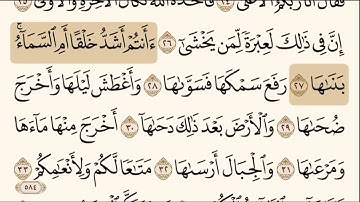 فَقَالَ أَنَا۠ رَبُّكُمُ ٱلْأَعْلَىٰ ٢٤ فَأَخَذَهُ ٱللَّهُ نَكَالَ ٱلْءَاخِرَةِ وَٱلْأُولَىٰٓ ٢٥
إِنَّ فِى ذَٰلِكَ لَعِبْرَةً لِّمَن يَخْشَىٰٓ ٢٦ ءَأَنتُمْ أَشَدُّ خَلْقًا أَمِ ٱلسَّمَآءُ ۚ
بَنَىٰهَا ٢٧ رَفَعَ سَمْكَهَا فَسَوَّىٰهَا ٢٨ وَأَغْطَشَ لَيْلَهَا وَأَخْرَجَ
ضُحَىٰهَا ٢٩ وَٱلْأَرْضَ بَعْدَ ذَٰلِكَ دَحَىٰهَآ ٣٠ أَخْرَجَ مِنْهَا مَآءَهَا
وَمَرْعَىٰهَا ٣١ وَٱلْجِبَالَ أَرْسَىٰهَا ٣٢ مَتَٰعًا لَّكُمْ وَلِأَنْعَٰمِكُمْ ٣٣
٥٨٤